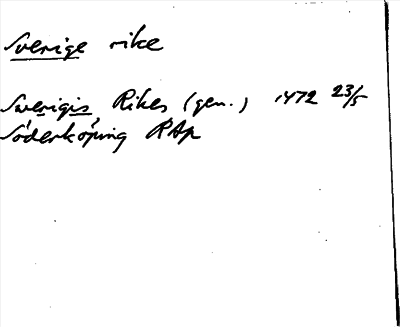 Sverige rike
Swerigis Rikes (gen.) 1472 23/5
Söderköping RAp